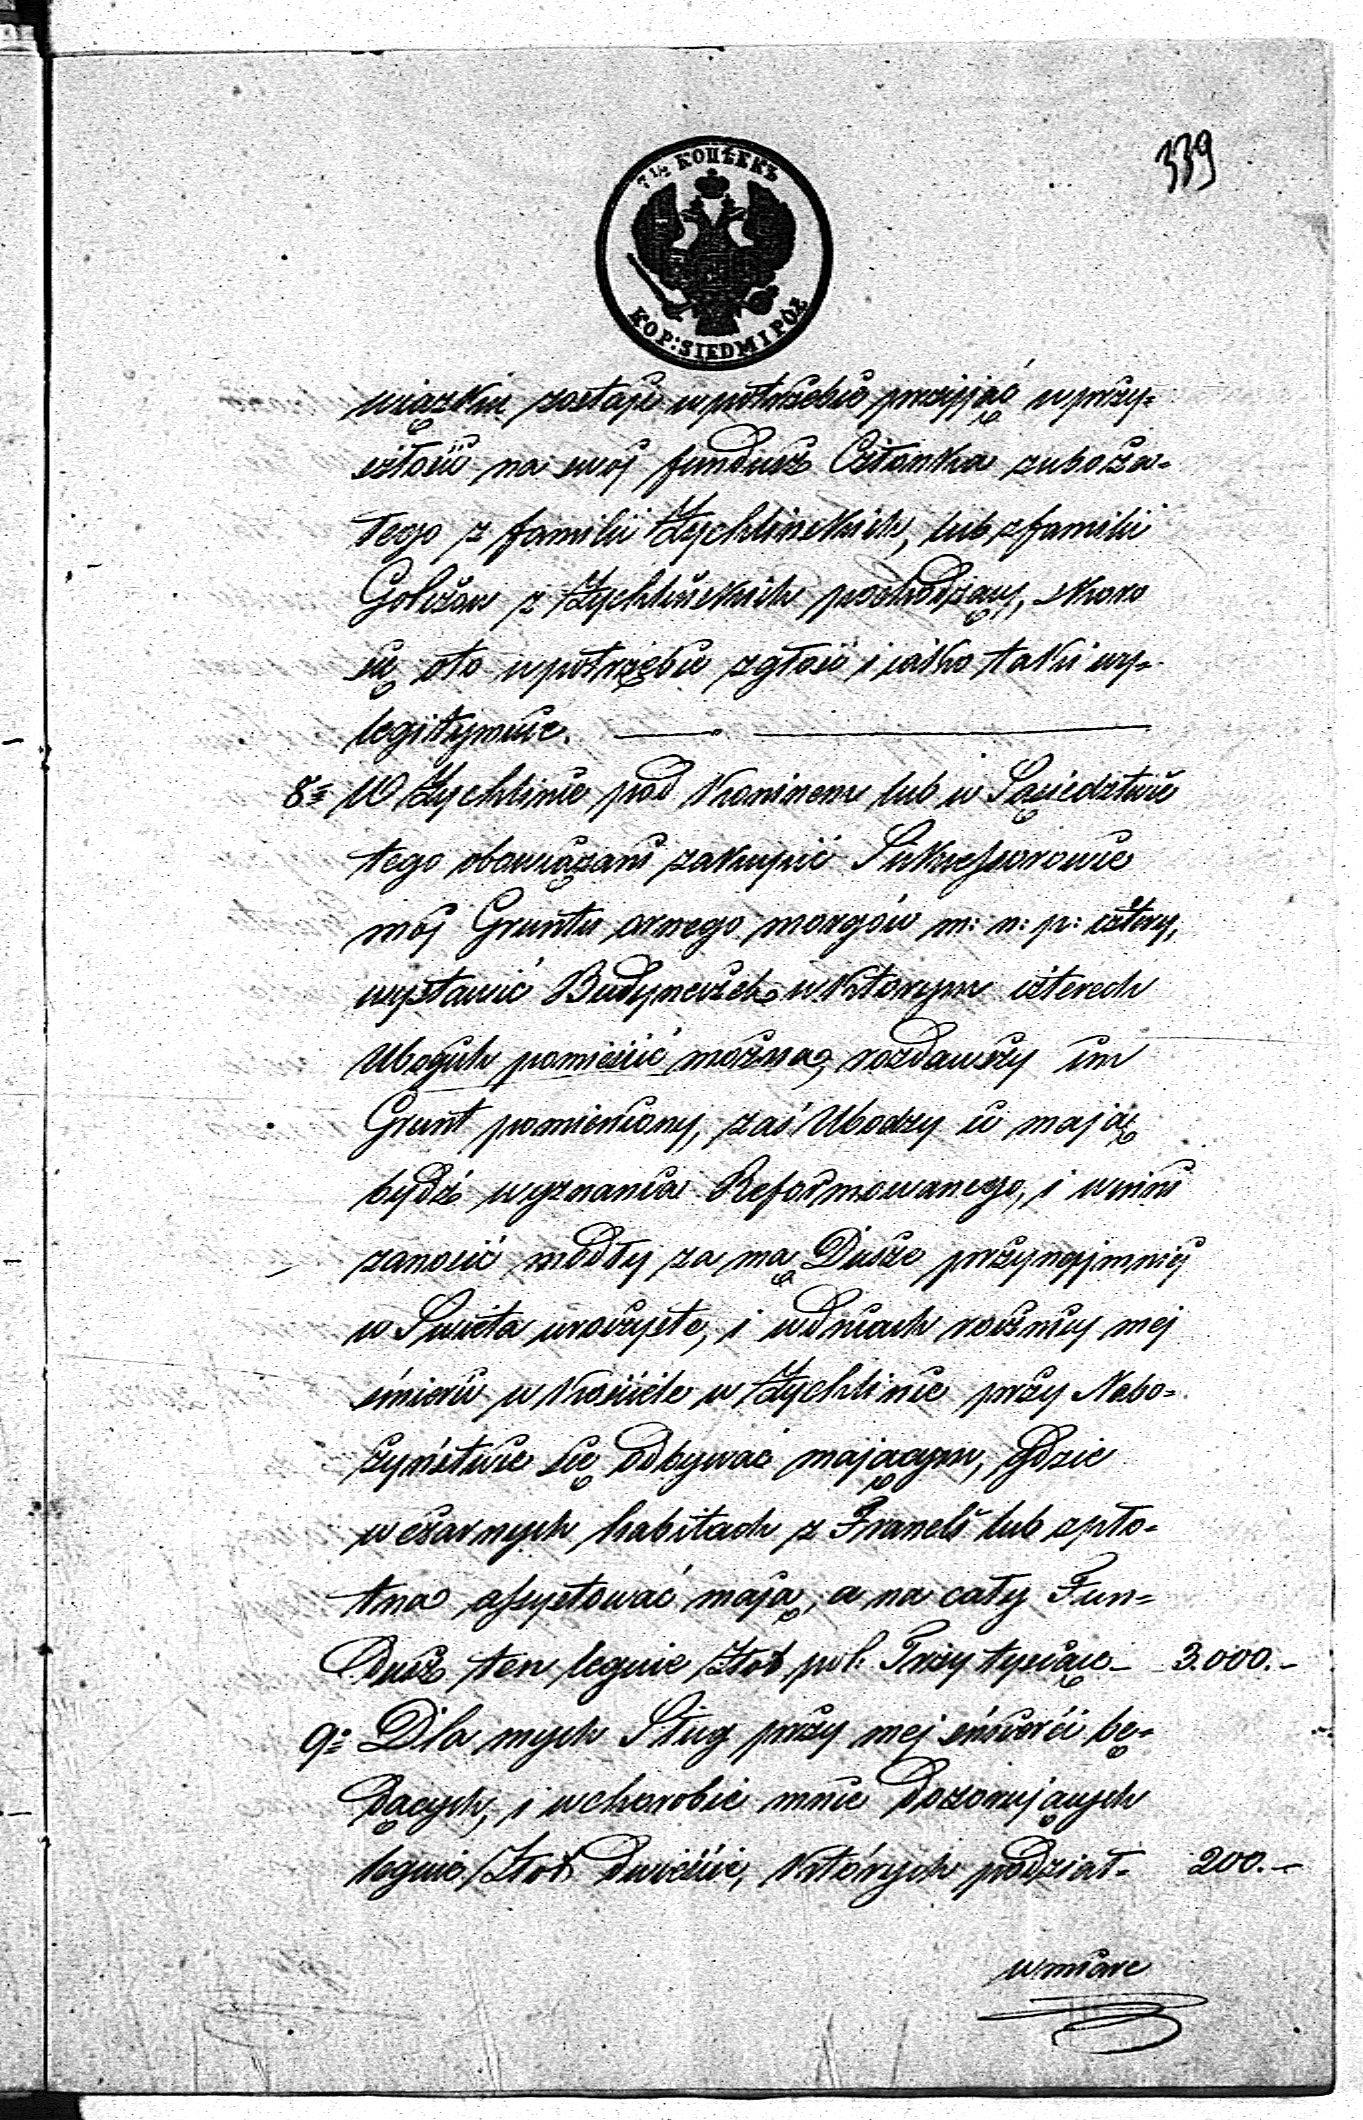 339
7½ КОПѢЕКЪ
KOP: SIEDM I PÓŁ
wiązku zostaje w potrzebie przyjąć w przy-
szłości na swój fundusz Członka zuboża-
łego z familii Żychlińskich, lub z familii
Golczów z Żychlińskich pochodzący, skoro
się oto w potrzebie zgłosi i jako taki wy-
legitymuie.
8º W Żychlinie pod Koninem lub w Sąsiedztwie
tego obowiązani zakupić Sukcessorowie
moj Gruntu ornego morgów m: n: p: cztery,
wystawić Budyneczek w którym czterech
Ubogich pomieścić można, rozdawszy im
Grunt pomieniony, zaś Ubodzy ci mają
bydź wyznania Reformowanego, i winni
zanosić modły za mą Duszę przynajmniej
w Święta uroczyste, i w dniach rocznicy mej
śmierci w Kościele w Żychlinie przy Nabo-
żyństwie się odbywać mającym, gdzie
w czarnych habitach z Franelś lub z płó-
tna assystować mają, a na cały Fun-
dusz ten leguie Złot. pol: Trzy tysiące 3.000.-
9º Dla mych Sług przy mej śmierci bę-
dących, i w chorobie mnie dozorujących
leguie Złot. dwieście, których podział- 200.-
w miarę